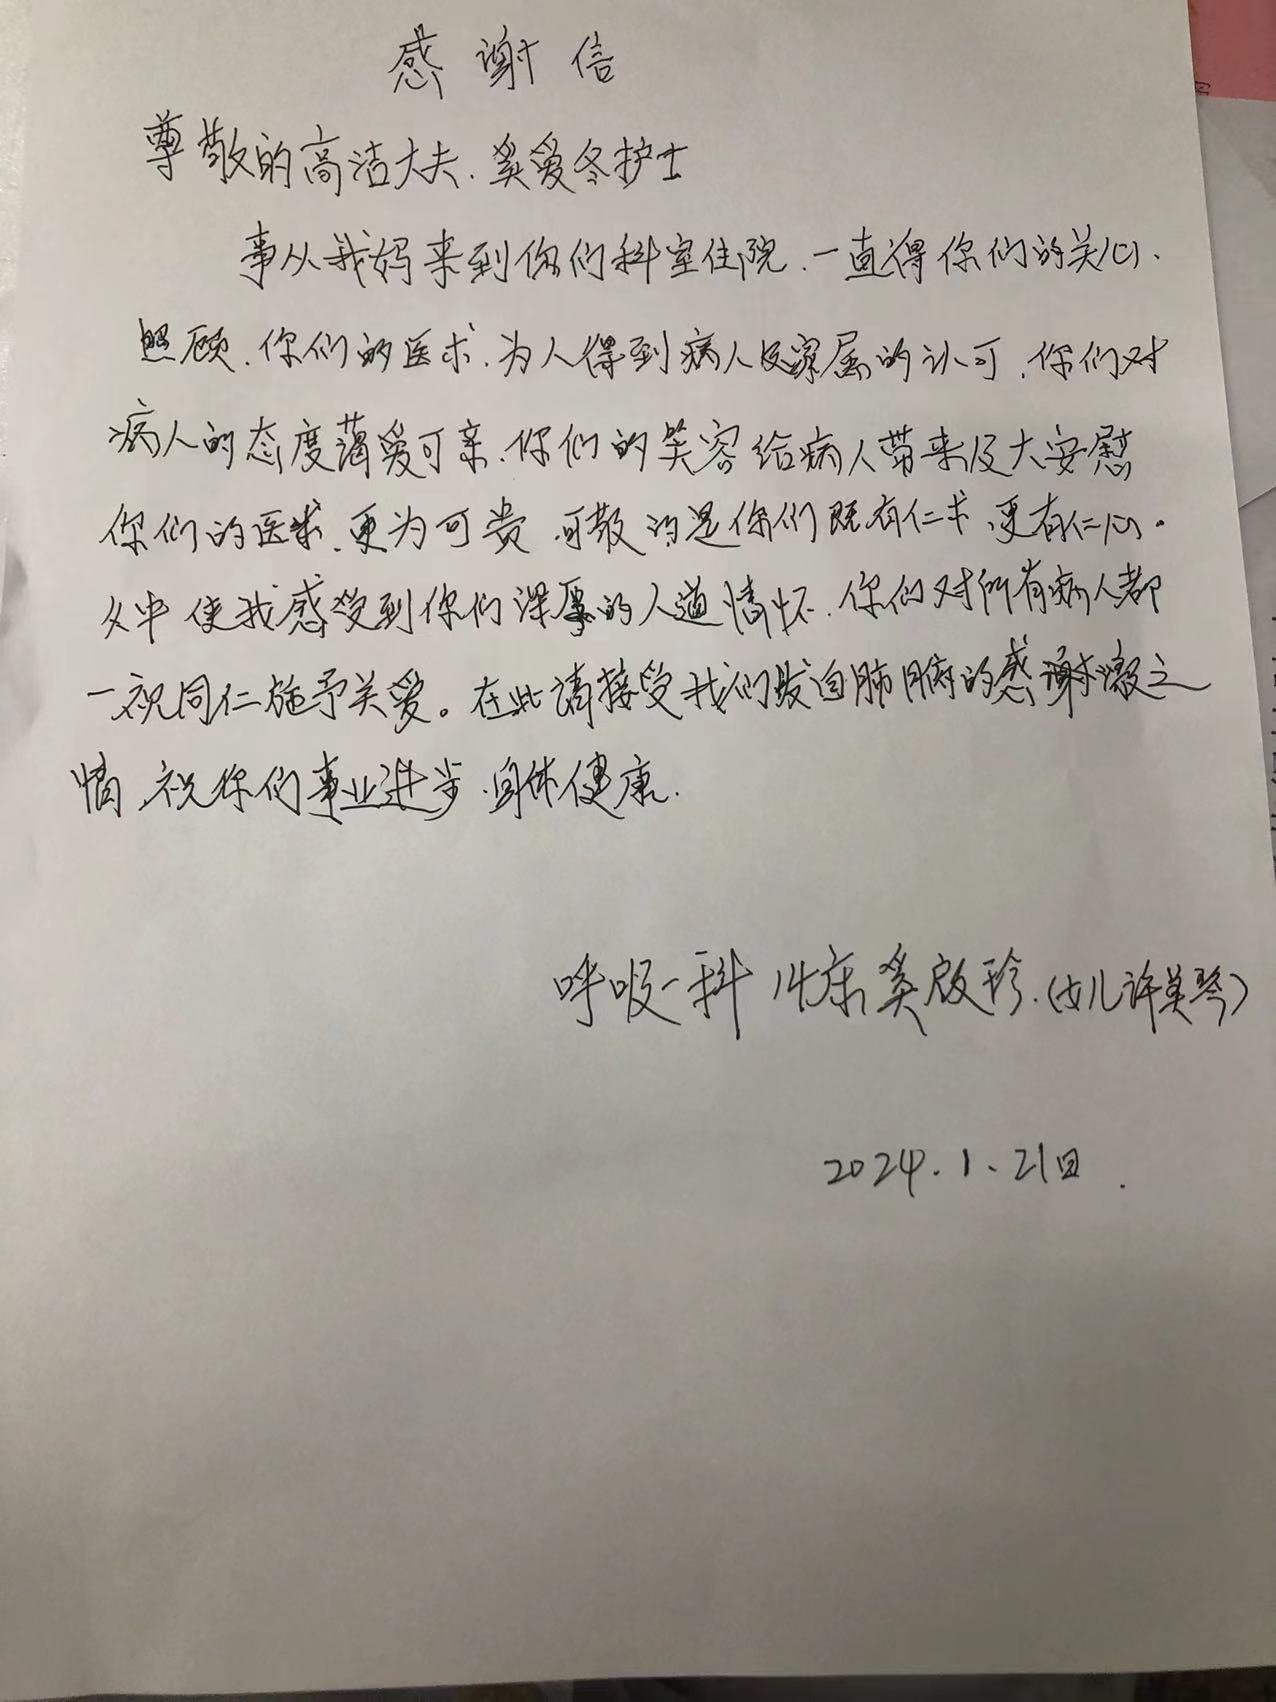 感谢信
尊敬的高洁大夫、奚爱冬护士
事从我妈来到你们科室住院、一直得你们的关心、
照顾、你们的医术、为人得到病人及家属的认可、你们对
病人的态度蔼爱可亲、你们的笑容给病人带来及大安慰
你们的医术、更为可贵 可敬的是你们既有仁术、更有仁心。
父中 使我感受到你们深厚的人道情怀、你们对所有病人都
一视同仁施予关爱。在此请接受我们发自肺腑的感谢激之
情、祝你们事业进步、身体健康.
呼吸一科 14床奚啟珍.(女儿许英琴)
2024.1、21日.